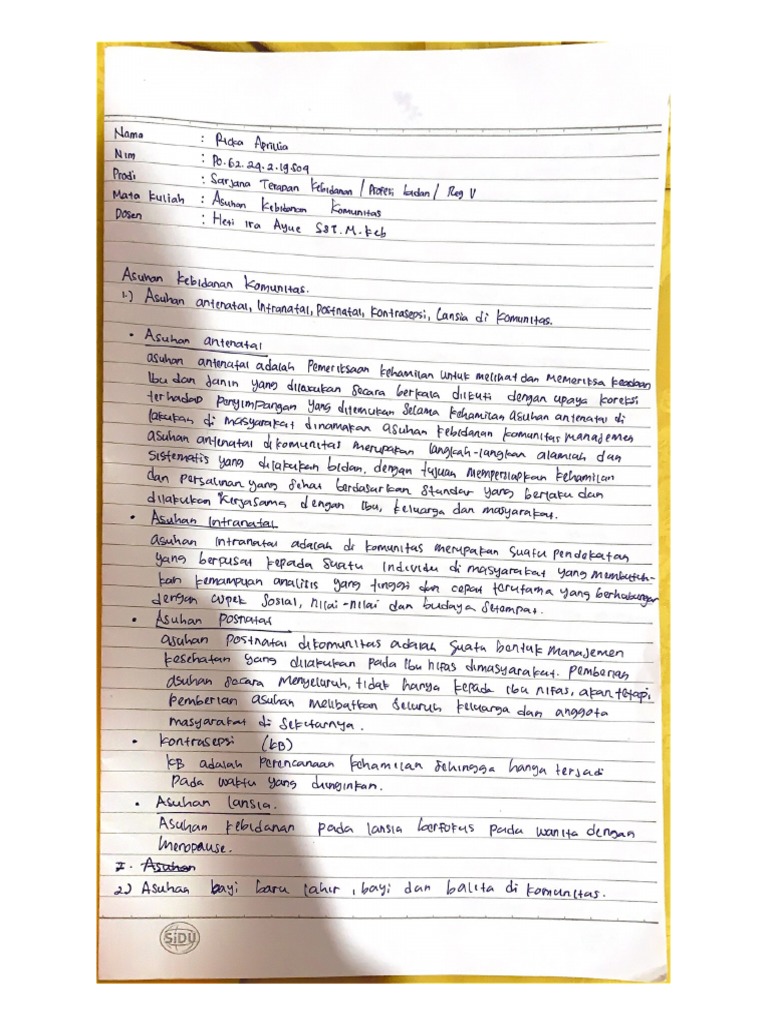 Nama : Ricka Aprilia
Nim : Po.62.24.2.19.509
Prodi : Sarjana Terapan Kebidanan / Profesi bidan / Reg V
Mata kuliah : Asuhan Kebidanan Komunitas
Dosen : Heti Ira Ayue SST.M.Keb
Asuhan Kebidanan Komunitas.
1.) Asuhan antenatal, Intranatal, Postnatal, Kontrasepsi, Lansia di Komunitas.
• Asuhan antenatal
asuhan antenatal adalah Pemeriksaan kehamilan untuk melihat dan Memeriksa keadaan
Ibu dan Janin yang dilakukan secara berkala diikuti dengan upaya koreksi
terhadap penyimpangan yang ditemukan selama kehamilan asuhan antenatal di
lakukan di masyarakat dinamakan asuhan kebidanan komunitas manajemen
asuhan antenatal dikomunitas merupakan langkah-langkah alamiah dan
Sistematis yang dilakukan bidan, dengan tujuan mempersiapkan kehamilan
dan persalinan yang sehat berdasarkan standar yang berlaku dan
dilakukan kerjasama dengan Ibu, keluarga dan masyarakat.
• Asuhan Intranatal
asuhan Intranatal adalah di komunitas merupakan suatu pendekatan
yang berpusat kepada suatu Individu di masyarakat yang membutuh-
kan kemampuan analisis yang tinggi dan cepat terutama yang berhubungan
dengan aspek sosial, nilai-nilai dan budaya setempat.
• Asuhan Postnatal
asuhan postnatal dikomunitas adalah suatu bentuk manajemen
kesehatan yang dilakukan pada Ibu nifas dimasyarakat. pemberian
asuhan secara menyeluruh, tidak hanya kepada ibu nifas, akan tetapi
pemberian asuhan melibatkan seluruh keluarga dan anggota
masyarakat di sekitarnya.
• Kontrasepsi (KB)
KB adalah perencanaan kehamilan sehingga hanya terjadi
Pada waktu yang diinginkan.
• Asuhan lansia.
Asuhan kebidanan pada lansia berfokus pada wanita dengan
Menopause.
I. Asuhan
2.) Asuhan bayi baru lahir, bayi dan balita di komunitas.
SiDU